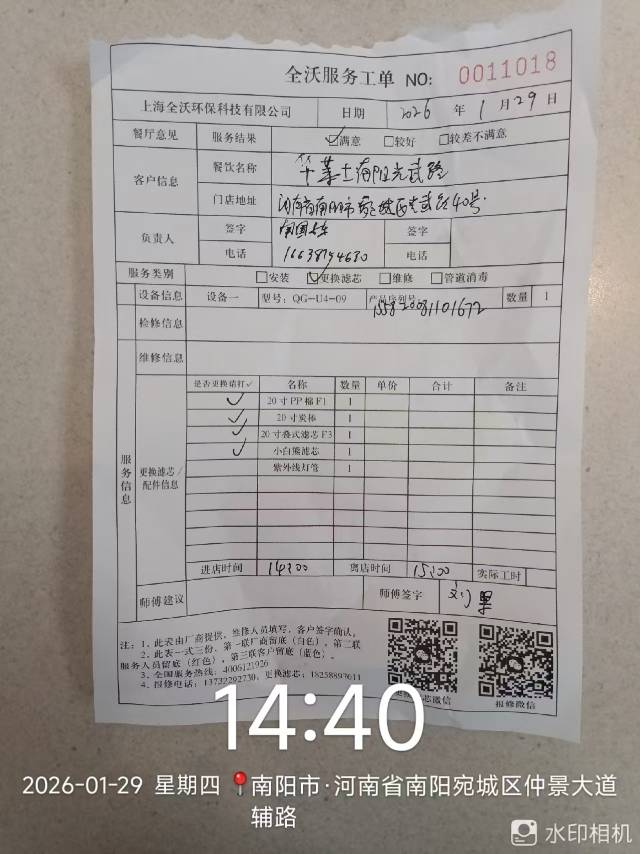 全沃服务工单 NO: 0011018
上海全沃环保科技有限公司 日期 2026 年 1 月 29 日
餐厅意见 服务结果 ☑满意 □较好 □较差不满意
客户信息 餐饮名称 华莱士南阳光武路
门店地址 河南省南阳市宛城区光武路40号
负责人 签字 签字
电话 16638794630 电话
服务类别 □安装 ☑更换滤芯 □维修 □管道消毒
设备信息 设备一 型号: QG-U4-09 产品序列号: 155820081101672 数量 1
检修信息
维修信息
服务信息
更换滤芯/配件信息
是否更换请打✓ 名称 数量 单价 合计 备注
✓ 20寸PP棉F1 1
✓ 20寸炭棒 1
✓ 20寸叠式滤芯F3 1
✓ 小白熊滤芯 1
紫外线灯管 1
进店时间 14:00 离店时间 15:00 实际工时
师傅建议 师傅签字
注: 1、此表由厂商提供, 维修人员填写, 客户签字确认。
2、此表一式三份, 第一联厂商留底(白色), 第二联
服务人员留底(红色), 第三联客户留底(蓝色)。
3、全国服务热线: 4006121926
4、报修电话: 13732292730; 更换滤芯: 18258893611
报修微信
14:40
2026-01-29 星期四 南阳市·河南省南阳宛城区仲景大道
辅路
水印相机